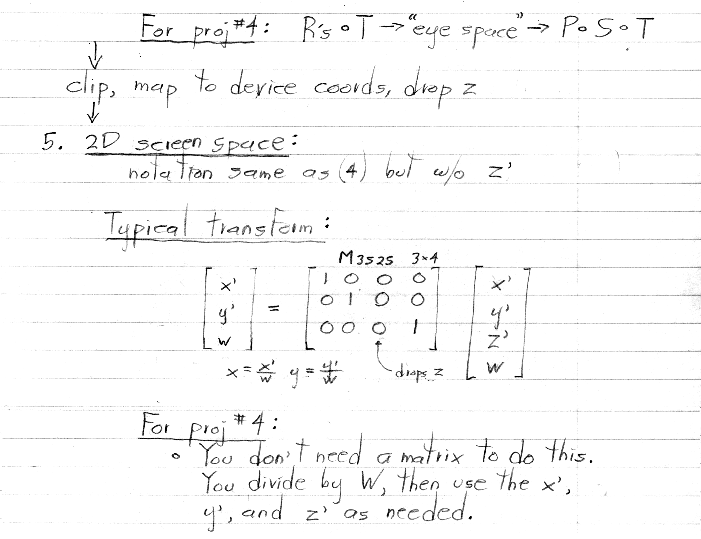 For proj #4: R's ∘ T → "eye space" → P∘S∘T
clip, map to device coords, drop z
5. 2D screen space:
notation same as (4) but w/o z'
Typical transform:
M3S2S 3×4
[x' y' w] = [1 0 0 0
0 1 0 0
0 0 0 1] [x' y' z' w]
x = x'/w y = y'/w drops z
For proj #4:
∘ You don't need a matrix to do this.
You divide by W, then use the x',
y', and z' as needed.